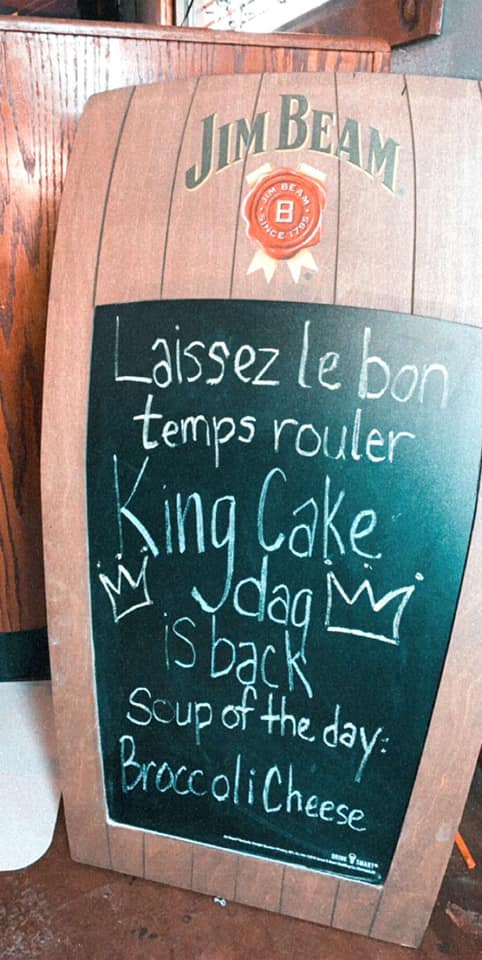 JIM BEAM
JIM BEAM
B
SINCE 1795
Laissez le bon
temps rouler
King Cake
Jdag
is back
Soup of the day:
Broccoli Cheese
DRINK SMART